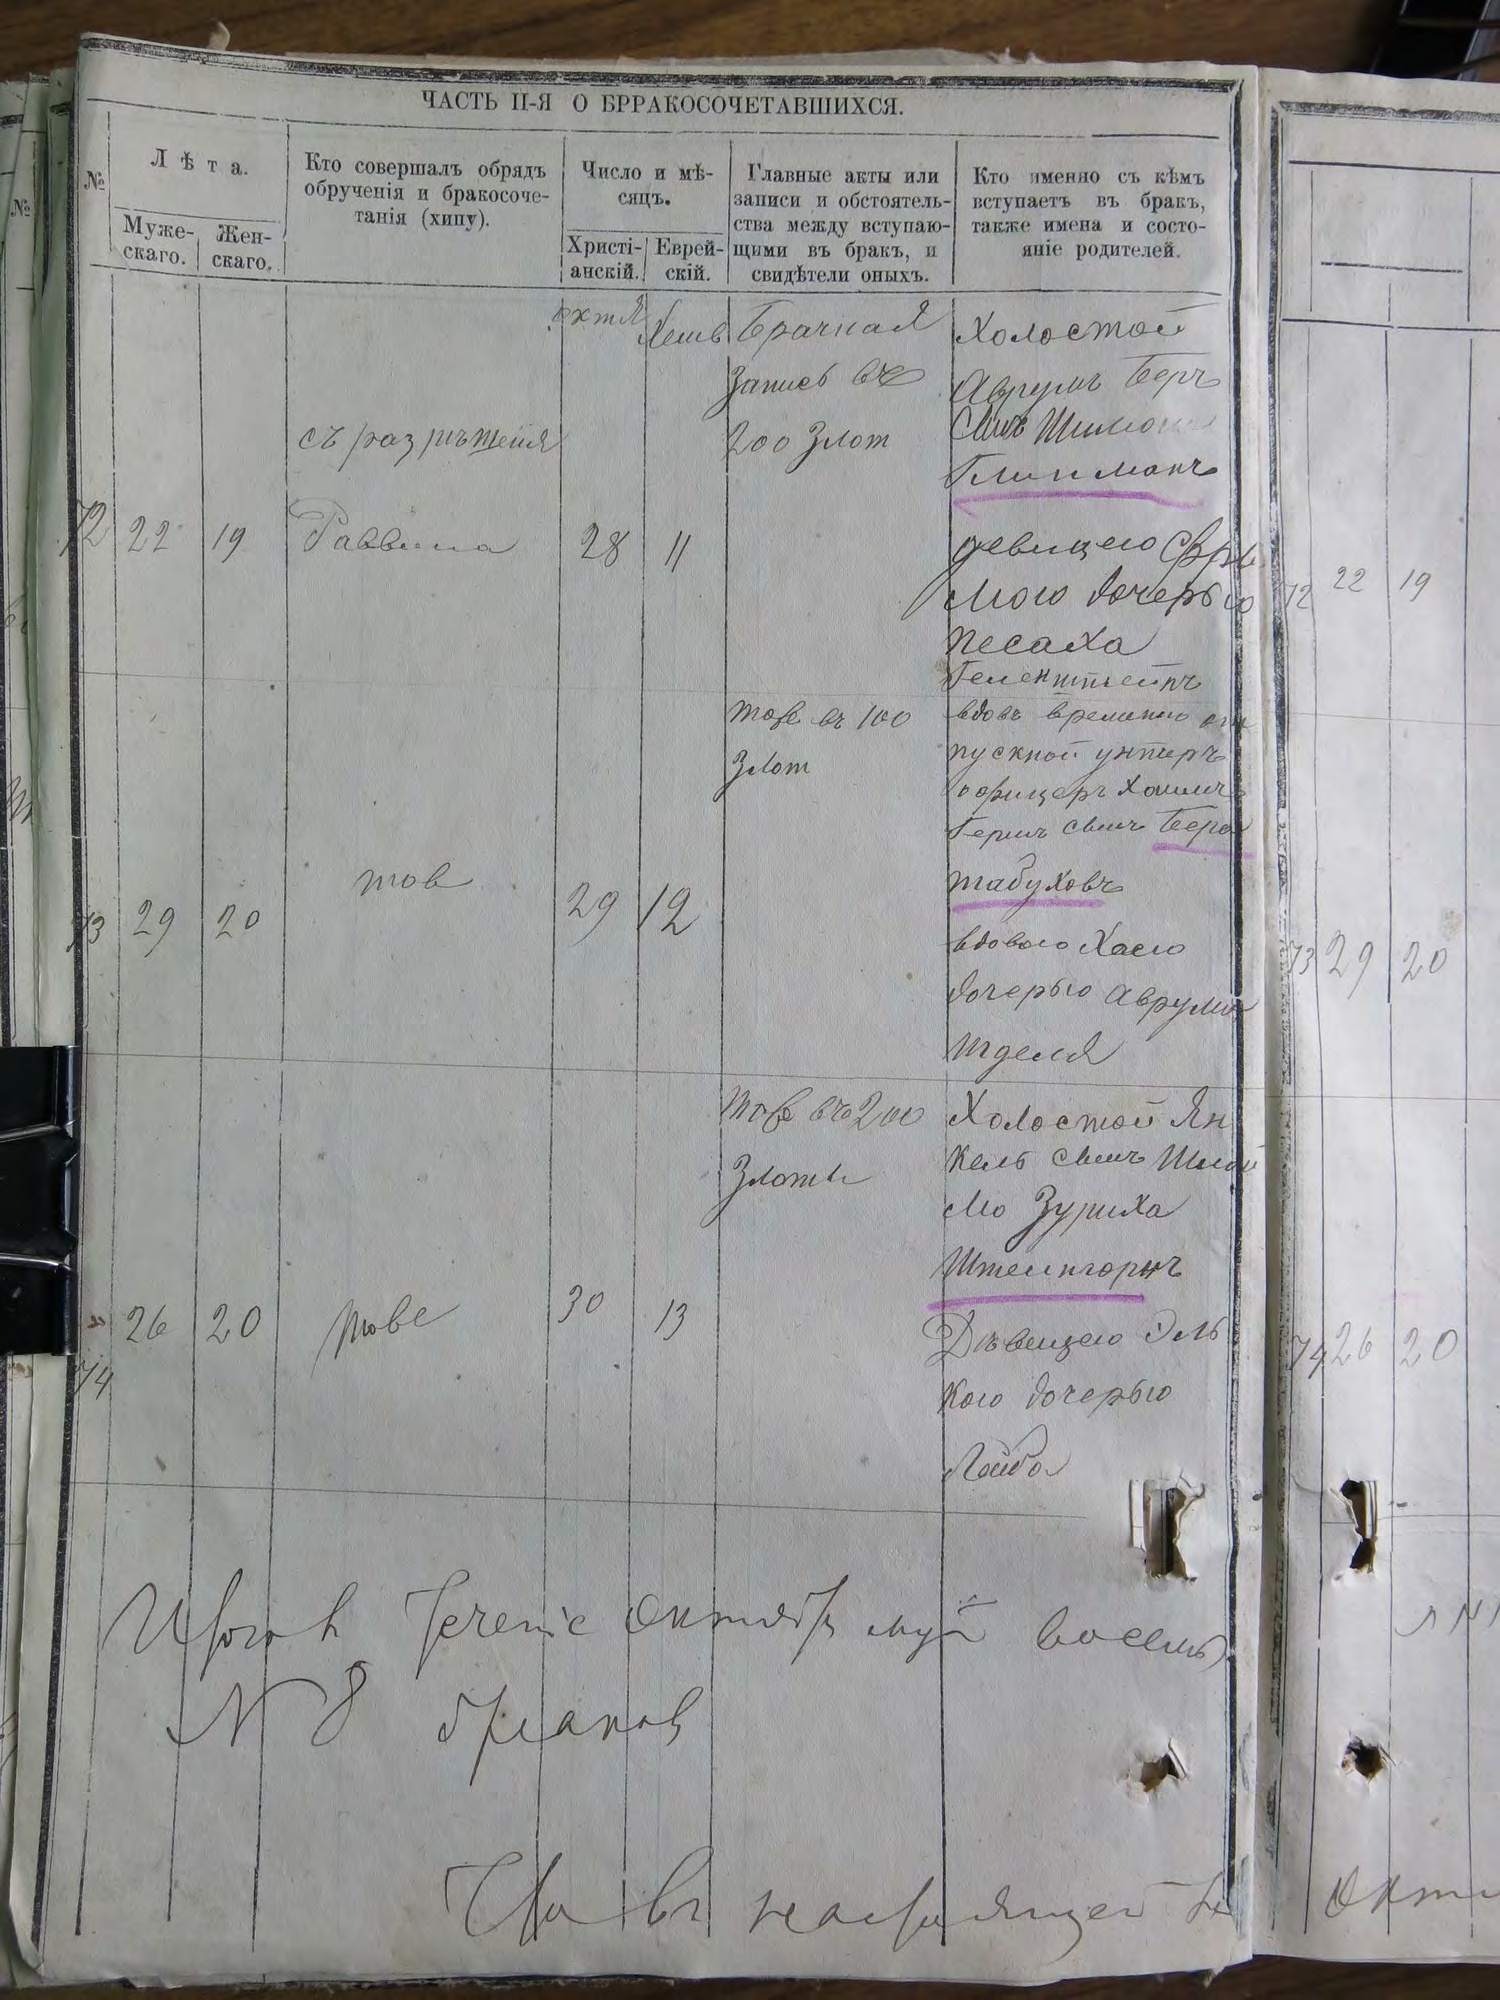 ЧАСТЬ II-Я О БРРАКОСОЧЕТАВШИХСЯ.
№
Лѣта.
Муже-
скаго.
Жен-
скаго.
Кто совершалъ обрядъ
обрученія и бракосоче-
танія (хипу).
Число и мѣ-
сяцъ.
Христі-
анскій.
Еврей-
скій.
Главные акты или
записи и обстоятель-
ства между вступаю-
щими въ бракъ, и
свидѣтели оныхъ.
Кто именно съ кѣмъ
вступаетъ въ бракъ,
также имена и состо-
яніе родителей.
72
22
19
съ разрѣшенія
Раввина
октя
28
Хешв
11
Брачная
Запись въ
200 Злот
Холостой
Аврумъ Беръ
Сынъ Шимона
Глипманъ
девицею Фры
мою дочерью
Песаха
Геленштейнъ
73
29
20
тов
29
12
тоже въ 100
Злот
вдовъ временно от
пускной унтеръ
офицеръ Хаимъ
Гершъ сынъ Бера
Табуховъ
вдовою Хаею
дочерью Аврума
74
26
20
тоже
30
13
Тоже въ 200
Злоты
Холостой Ян
кель сынъ Шлой
мо Зуриха
Штейнгорнъ
Дѣвицею Эль
кою дочерью
Лейба
Итого в течение Октября муй восемь
N 8 браков
Что въ настоящей
№
72
22
19
73
29
20
74
26
20